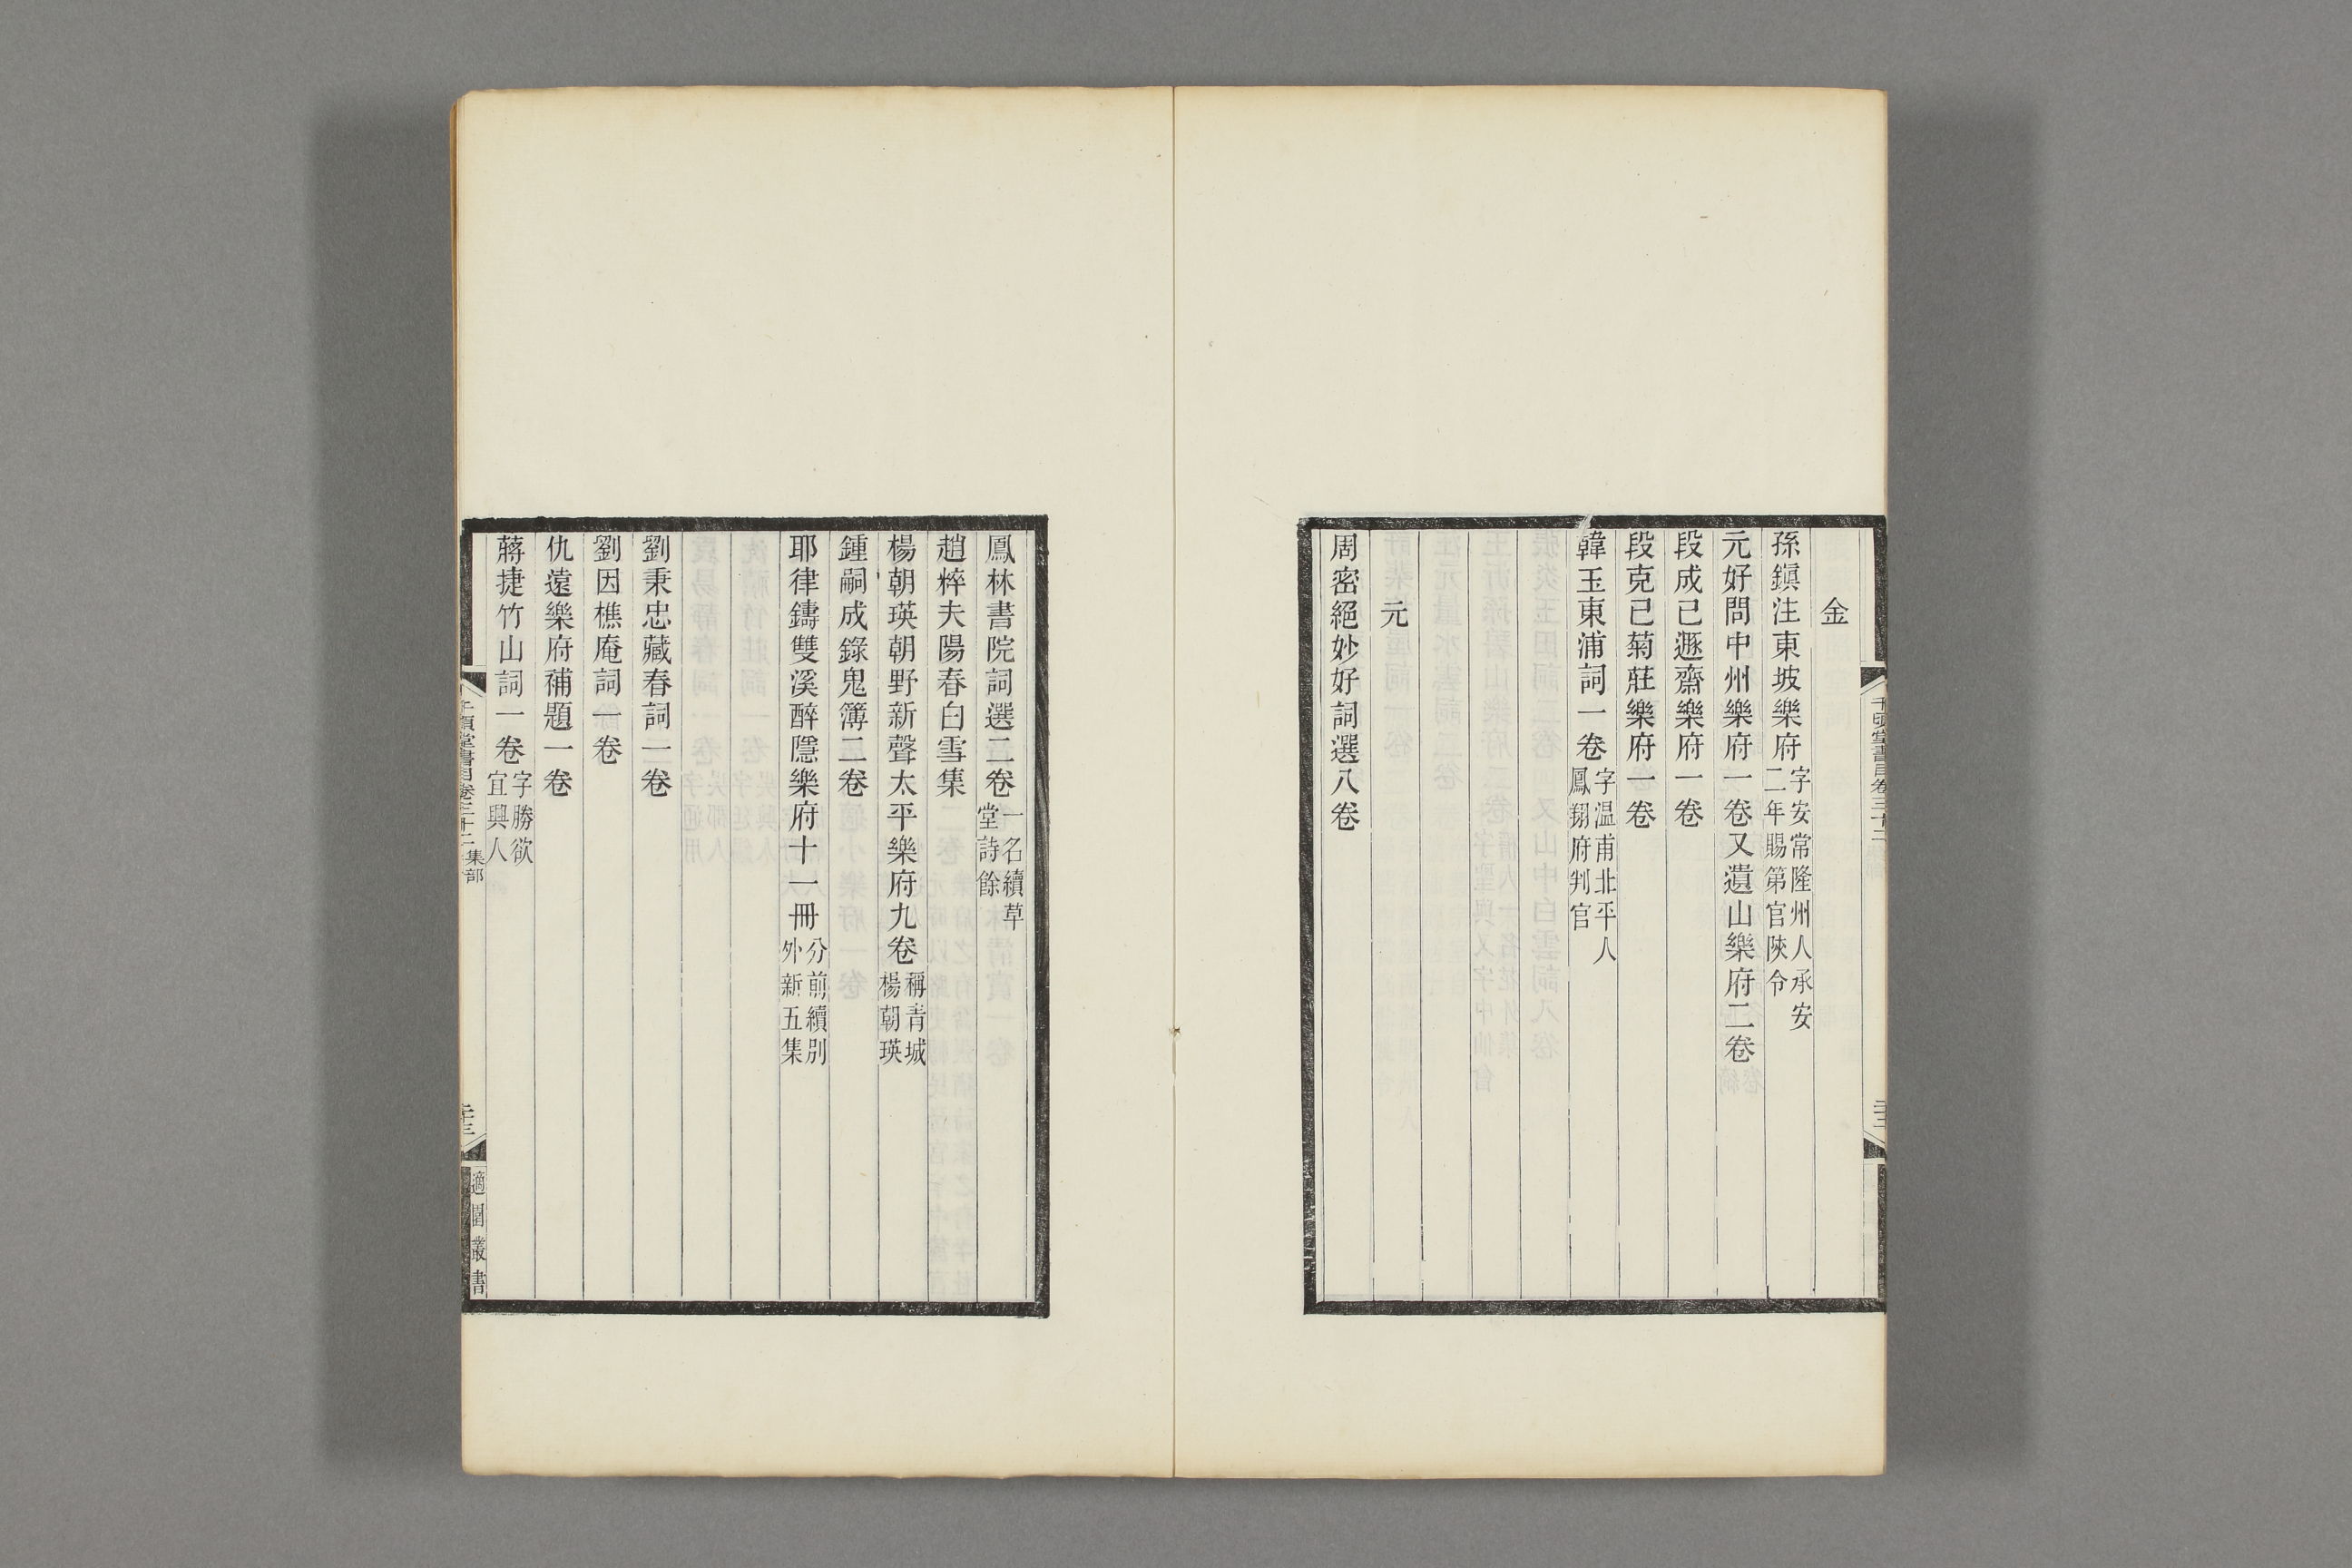 金
孫鎭注東坡樂府字安常隆州人承安二年賜第官陜令
元好問中州樂府一卷又遺山樂府二卷
段成己遯齋樂府一卷
段克己菊莊樂府一卷
韓玉東浦詞一卷字温甫北平人鳳翔府判官
元
周密絕妙好詞選八卷
千頃堂書目卷三十二
鳳林書院詞選二卷一名續草堂詩餘
趙粹夫陽春白雪集
楊朝瑛朝野新聲太平樂府九卷稱青城楊朝瑛
鍾嗣成錄鬼簿二卷
耶律鑄雙溪醉隱樂府十一冊分前續別外新五集
劉秉忠藏春詞一卷
劉因樵庵詞一卷
仇遠樂府補題一卷
蔣捷竹山詞一卷字勝欲宜興人
千頃堂書目卷三十二集部
適園叢書